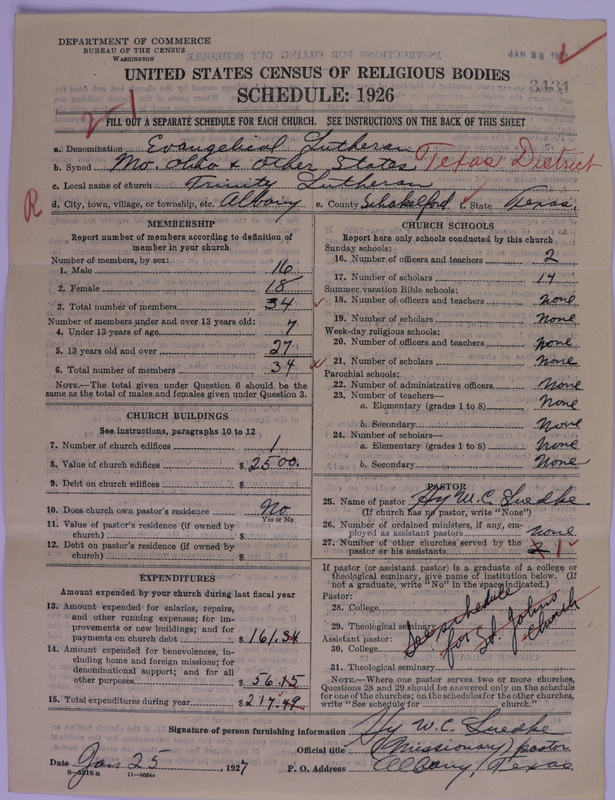 DEPARTMENT OF COMMERCE
BUREAU OF THE CENSUS
WASHINGTON
JAN 28
UNITED STATES CENSUS OF RELIGIOUS BODIES
SCHEDULE: 1926
2-1
FILL OUT A SEPARATE SCHEDULE FOR EACH CHURCH. SEE INSTRUCTIONS ON THE BACK OF THIS SHEET
a. Denomination Evangelical Lutheran
b. Synod Mo. Ohio & Other States Texas District
c. Local name of church Trinity Lutheran
R
d. City, town, village, or township, etc. Albany e. County Schakelford f. State Texas.
MEMBERSHIP
Report number of members according to definition of
member in your church
Number of members, by sex:
1. Male 16
2. Female 18
3. Total number of members 34
Number of members under and over 13 years old:
4. Under 13 years of age 7
5. 13 years old and over 27
6. Total number of members 34
NOTE.—The total given under Question 6 should be the
same as the total of males and females given under Question 3.
CHURCH BUILDINGS
See instructions, paragraphs 10 to 12
7. Number of church edifices 1
8. Value of church edifices $ 2500.
9. Debt on church edifices $
10. Does church own pastor's residence No
Yes or No
11. Value of pastor's residence (if owned by
church) $
12. Debt on pastor's residence (if owned by
church) $
EXPENDITURES
Amount expended by your church during last fiscal year
13. Amount expended for salaries, repairs,
and other running expenses; for im-
provements or new buildings; and for
payments on church debt $ 161.34
14. Amount expended for benevolences, in-
cluding home and foreign missions; for
denominational support; and for all
other purposes $ 56.15
15. Total expenditures during year $ 217.49
CHURCH SCHOOLS
Report here only schools conducted by this church
Sunday schools:
16. Number of officers and teachers 2
17. Number of scholars 14
Summer vacation Bible schools:
18. Number of officers and teachers None
19. Number of scholars None
Week-day religious schools:
20. Number of officers and teachers None
21. Number of scholars None
Parochial schools:
22. Number of administrative officers None
23. Number of teachers—
a. Elementary (grades 1 to 8) None
b. Secondary None
24. Number of scholars—
a. Elementary (grades 1 to 8) None
b. Secondary None
PASTOR
25. Name of pastor Hy W. C. Luedke
(If church has no pastor, write "None")
26. Number of ordained ministers, if any, em-
ployed as assistant pastors none
27. Number of other churches served by the
pastor or his assistants 2 1
If pastor (or assistant pastor) is a graduate of a college or
theological seminary, give name of institution below. (If
not a graduate, write "No" in the space indicated.)
Pastor:
28. College
29. Theological seminary
Assistant pastor:
30. College
31. Theological seminary
See schedule
for St. Johns
Church
NOTE.—Where one pastor serves two or more churches,
Questions 28 and 29 should be answered only on the schedule
for one of the churches; on the schedules for the other churches,
write "See schedule for church."
Signature of person furnishing information Hy W. C. Luedke
Official title (Missionary) pastor
Date Jan 25, 1927 P. O. Address Albany, Texas.
8—5318 a 11—9054